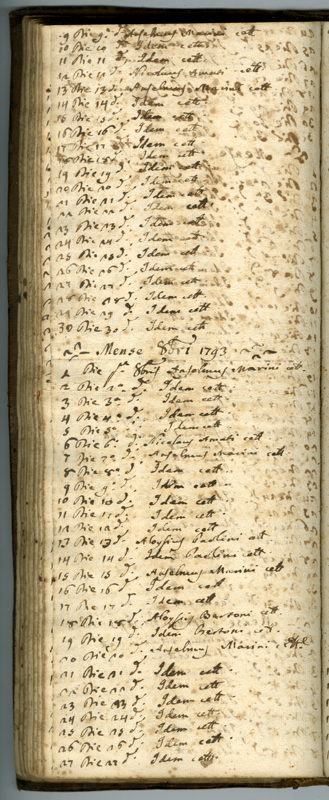 9 Die 9 d. Anselmus Marini cett
10 Die 10 d. Idem cett
11 Die 11 d. Idem cett
12 Die 12 d. Nicolaus Amati cett
13 Die 13 d. Anselmus Marini cett
14 Die 14 d. Idem cett
15 Die 15 d. Idem cett
16 Die 16 d. Idem cett
17 Die 17 d. Idem cett
18 Die 18 d. Idem cett
19 Die 19 d. Idem cett
20 Die 20 d. Idem cett
21 Die 21 d. Idem cett
22 Die 22 d. Idem cett
23 Die 23 d. Idem cett
24 Die 24 d. Idem cett
25 Die 25 d. Idem cett
26 Die 26 d. Idem cett
27 Die 27 d. Idem cett
28 Die 28 d. Idem cett
29 Die 29 d. Idem cett
30 Die 30 d. Idem cett
Mense 8bri 1793
1 Die pa 8bris Anselmus Marini cett
2 Die 2a d. Idem cett
3 Die 3a d. Idem cett
4 Die 4a d. Idem cett
5 Die 5a d. Idem cett
6 Die 6a d. Nicolaus Amati cett
7 Die 7a d. Anselmus Marini cett
8 Die 8a d. Idem cett
9 Die 9 d. Idem cett
10 Die 10 d. Idem cett
11 Die 11 d. Idem cett
12 Die 12 d. Idem cett
13 Die 13 d. Aloysius Paolini cett
14 Die 14 d. Idem Paolini cett
15 Die 15 d. Anselmus Marini cett
16 Die 16 d. Idem cett
17 Die 17 d. Idem cett
18 Die 18 d. Aloysius Bertoni cett
19 Die 19 d. Idem Bertoni cett
20 Die 20 d. Anselmus Marini cett
21 Die 21 d. Idem cett
22 Die 22 d. Idem cett
23 Die 23 d. Idem cett
24 Die 24 d. Idem cett
25 Die 25 d. Idem cett
26 Die 26 d. Idem cett
27 Die 27 d. Idem cett